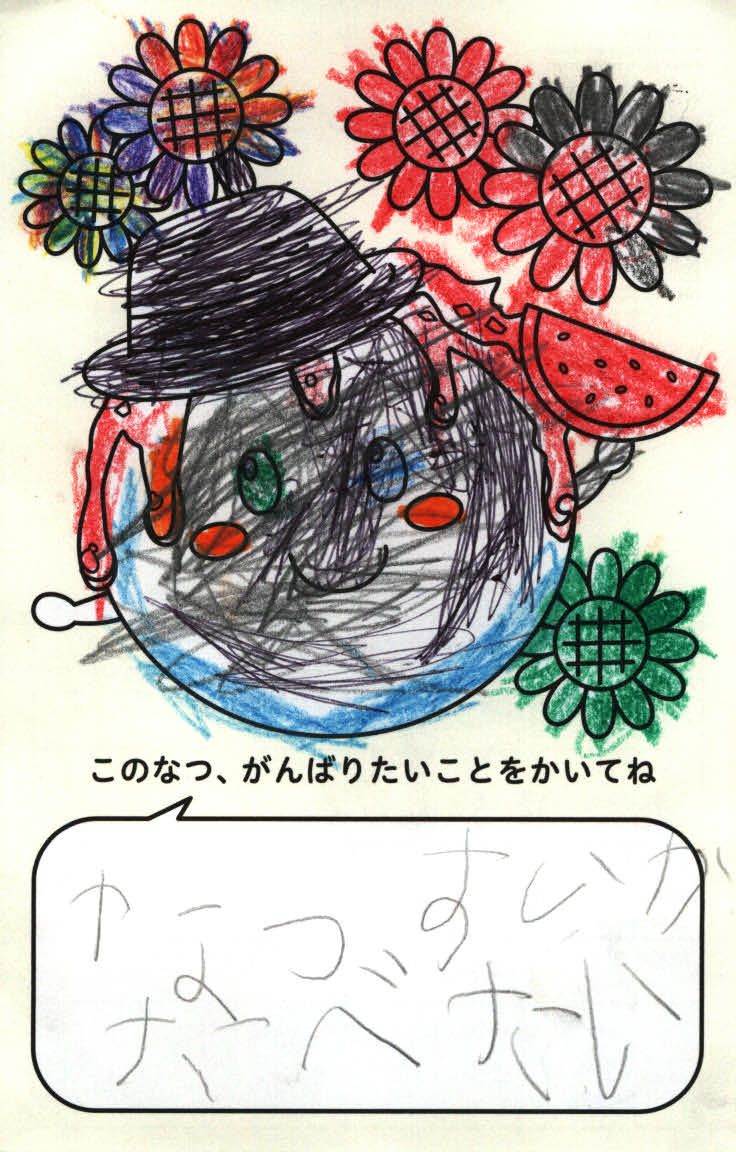 このなつ、がんばりたいことをかいてね
なつ すいか
たべたい